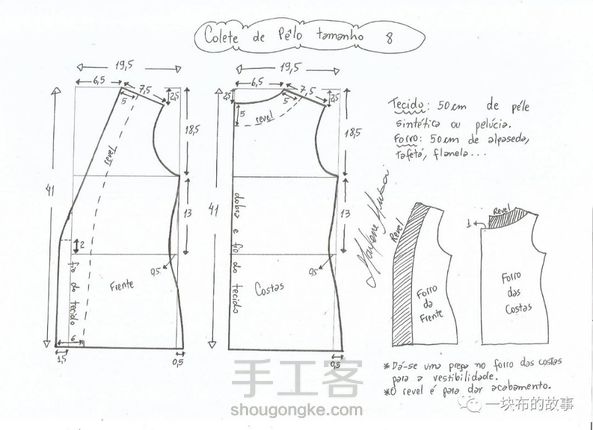 Colete de Pêlo tamanho 8
19,5
6,5
7,5
5
2,5
revel
18,5
41
13
2
0,5
fio do tecido
Frente
6
1,5
0,5
19,5
6,5
7,5
2,5
5
5
revel
18,5
41
dobra e fio do tecido
13
0,5
Costas
0,5
Tecido: 50cm de pêle
sintética ou pelúcia.
Forro: 50cm de
tafetá, flanela...
Revel
Forro
da
Frente
Revel
1
Forro
das
Costas
*Dá-se uma prega no forro das costas
para a vestibilidade.
*O revel é para dar acabamento.
手工客
shougongke.com
一块布的故事